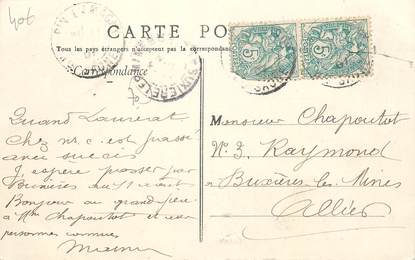 406
CARTE POS
Tous les pays étrangers n'acceptent pas la correspondance
Correspondance
5
5
Quand Laurerat
chez nr. c'est passé
avec succès
J'espère passer par
Buxières
Bonjour au grand père
à Mme Chapoutot et aux
personnes connues
Monsieur Chapoutot
N. J. Raymond
à Buxières les Mines
Allier